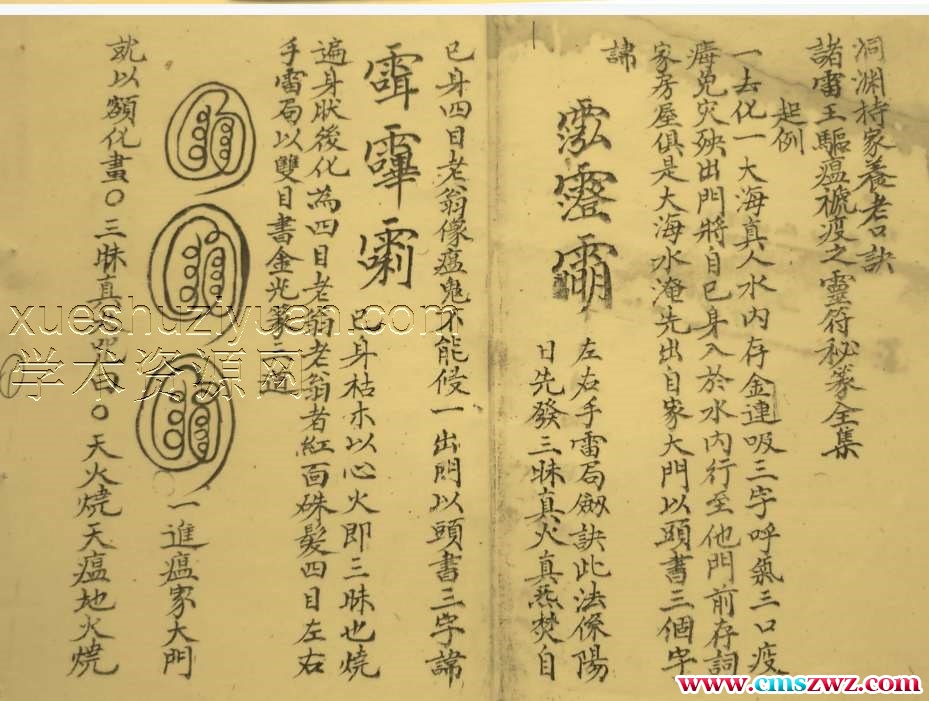 洞渊持家養老口訣
諸雷王驅瘟禠疫之靈符秘篆全集
起例
一去化一大海真人水内存金連吸三字呼氣三口疫
痗免灾殃出門將自己身入於水内行至他門前存詞
家房屋俱是大海水淹先出自家大門以頭書三個字
諱
泓
左右手雷局劔訣此法係陽
日先發三昧真火真炁焚自
己身四目老翁像瘟鬼不能侵一出門以頭書三字諱
己身枯木以心火即三昧也燒
遍身狀後化為四目老翁老翁者紅面硃髮四目左右
手雷局以雙目書金光篆三道
一進瘟家大門
就以額化畫〇三昧真火咒曰〇天火燒天瘟地火燒
xueshuziyuan.com
学术资源网
www.cmszwz.com